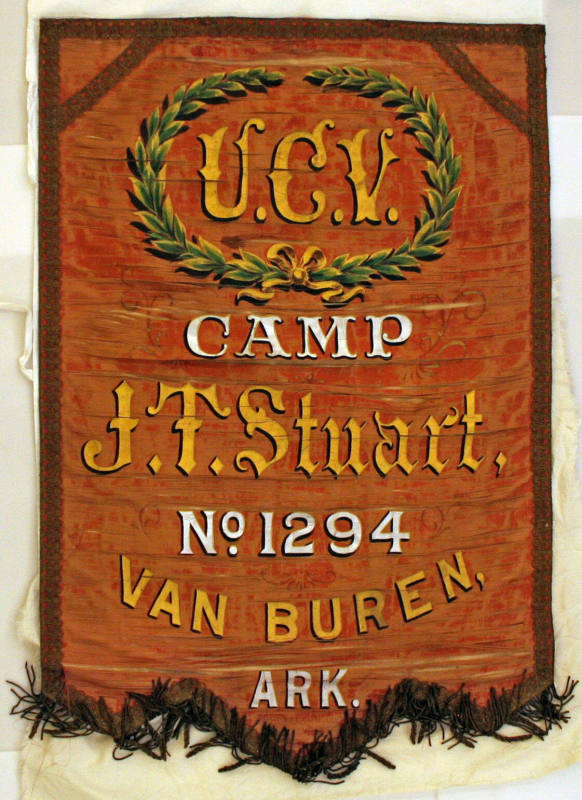 U.C.V.
CAMP
J.T. Stuart,
No 1294
VAN BUREN,
ARK.